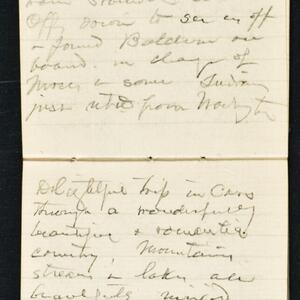 Off down to see
& found Baldwin on
board. in charge of
Moses & some Indians
just returned from Washington
Delightful trip in Cars
through a wonderfully
beautiful & romantic
country, mountains
streams & lakes all
beautifully mixed